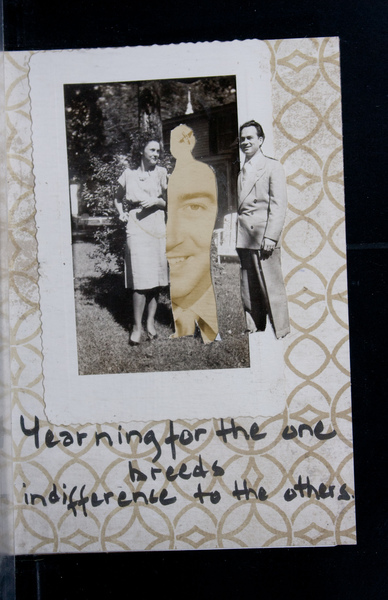 Yearning for the one
breeds
indifference to the others.